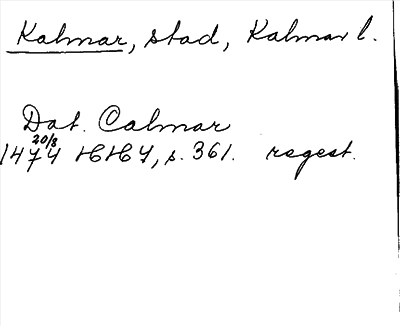 Kalmar, stad, Kalmar l.
Dat. Calmar
20/8
1474 HH4, s. 361. regest.